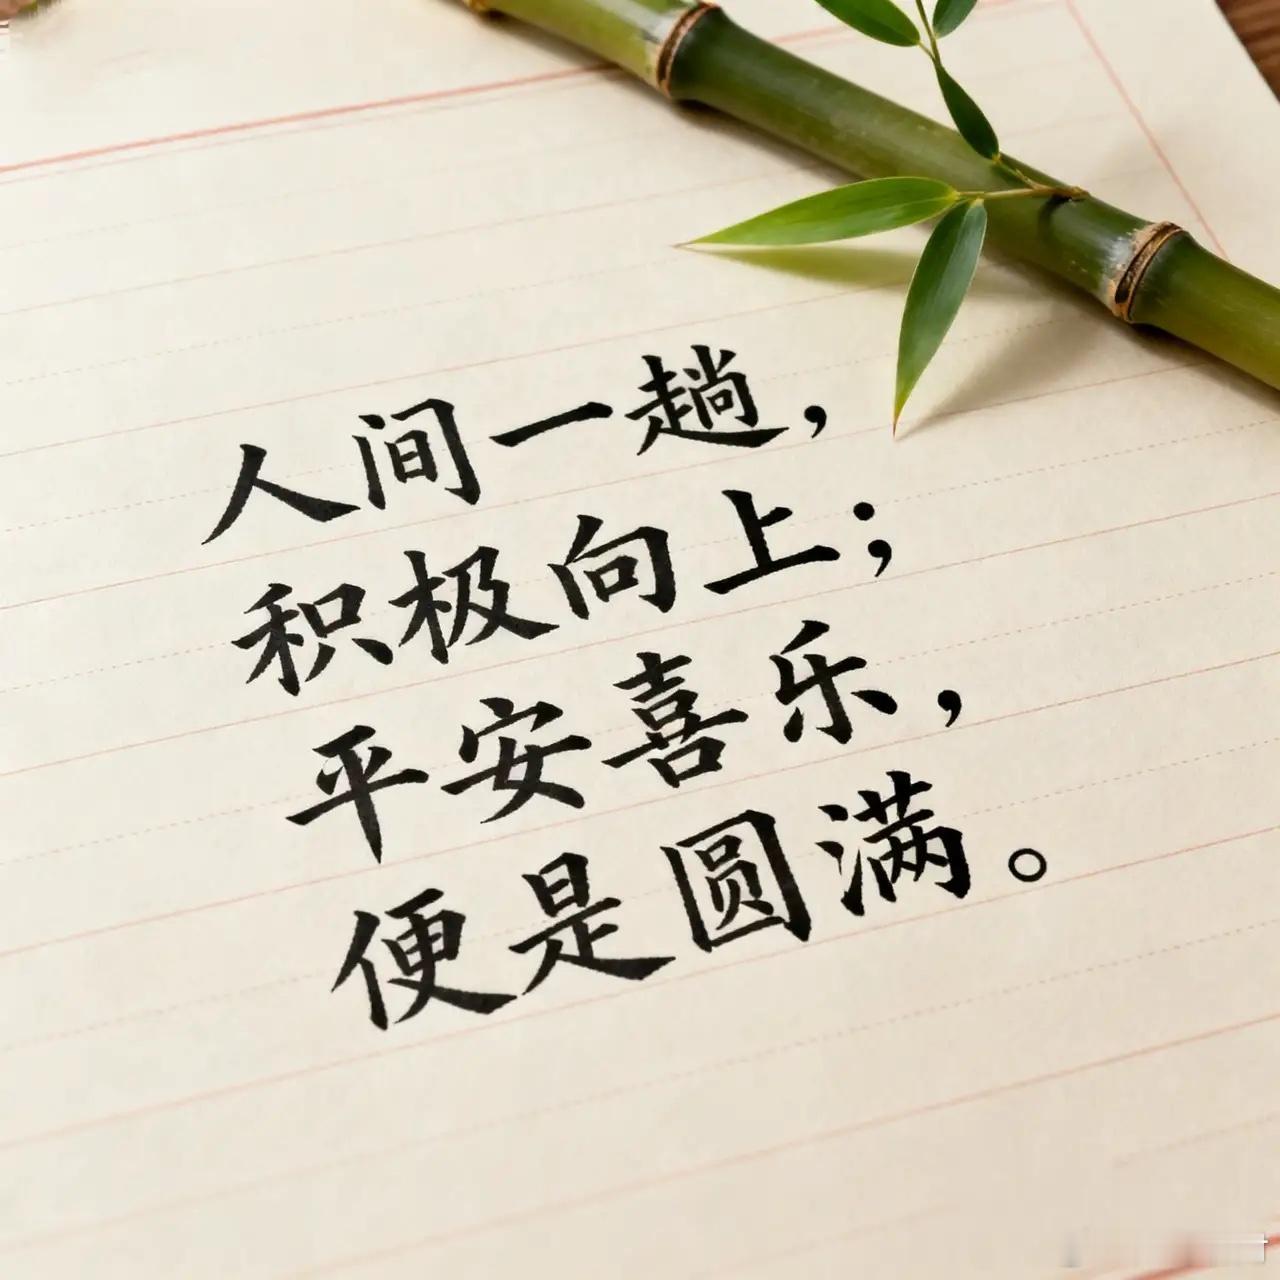 人间一趟，
积极向上；
平安喜乐，
便是圆满。